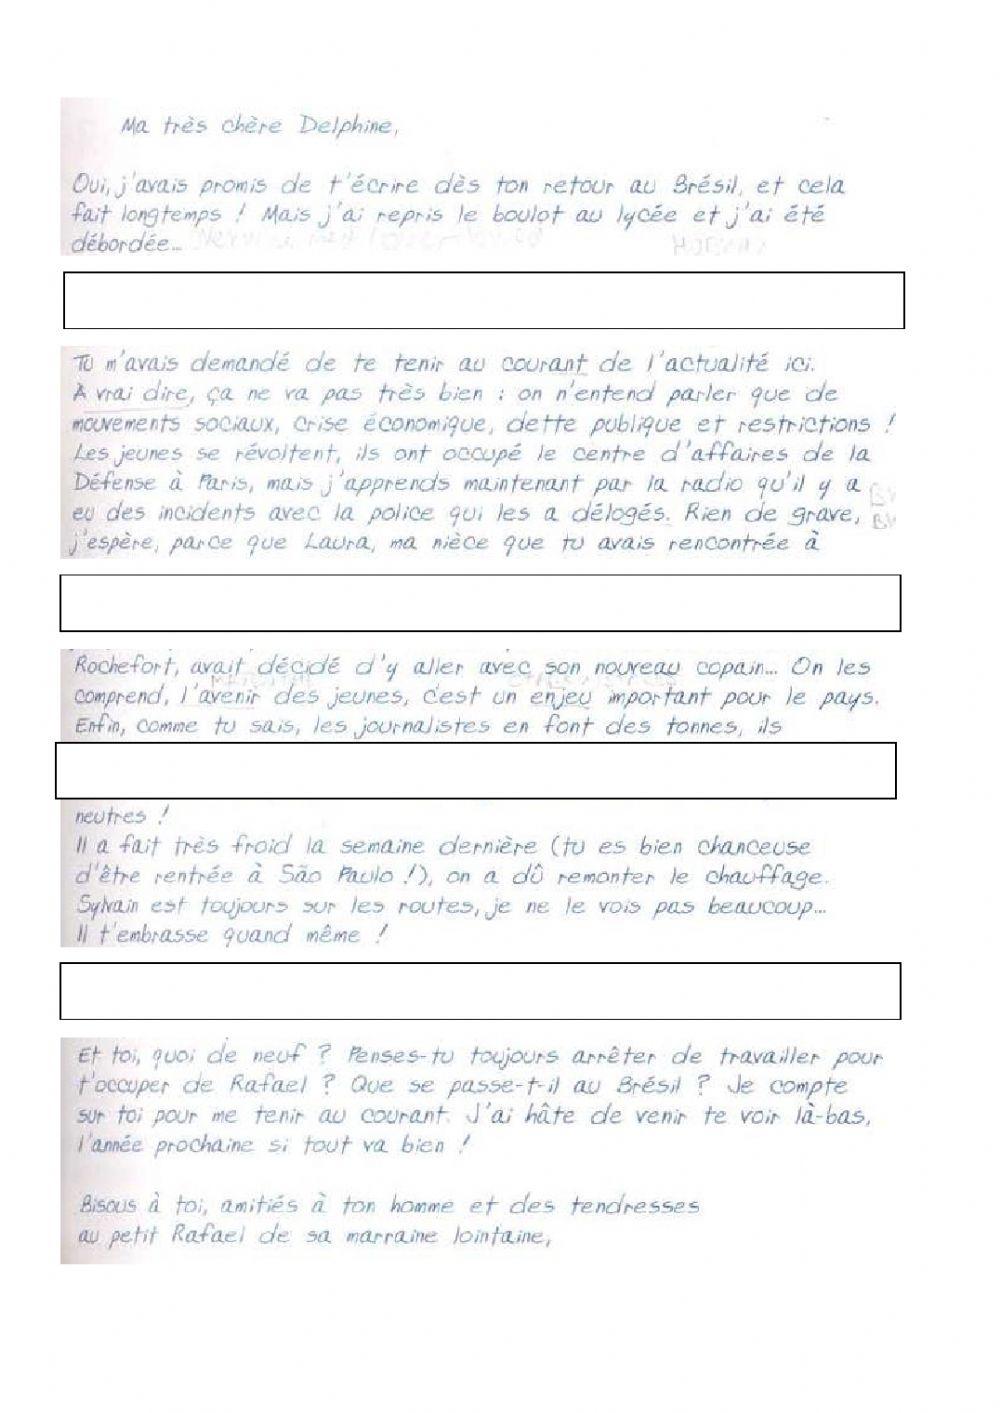 Ma très chère Delphine,
Oui, j'avais promis de t'écrire dès ton retour au Brésil, et cela
fait longtemps ! Mais j'ai repris le boulot au lycée et j'ai été
débordée...
Tu m'avais demandé de te tenir au courant de l'actualité ici.
À vrai dire, ça ne va pas très bien : on n'entend parler que de
mouvements sociaux, crise économique, dette publique et restrictions !
Les jeunes se révoltent, ils ont occupé le centre d'affaires de la
Défense à Paris, mais j'apprends maintenant par la radio qu'il y a
eu des incidents avec la police qui les a délogés. Rien de grave,
j'espère, parce que Laura, ma nièce que tu avais rencontrée à
Rochefort, avait décidé d'y aller avec son nouveau copain... On les
comprend, l'avenir des jeunes, c'est un enjeu important pour le pays.
Enfin, comme tu sais, les journalistes en font des tonnes, ils
neutres !
Il a fait très froid la semaine dernière (tu es bien chanceuse
d'être rentrée à São Paulo !), on a dû remonter le chauffage.
Sylvain est toujours sur les routes, je ne le vois pas beaucoup...
Il t'embrasse quand même !
Et toi, quoi de neuf ? Penses-tu toujours arrêter de travailler pour
t'occuper de Rafael ? Que se passe-t-il au Brésil ? Je compte
sur toi pour me tenir au courant. J'ai hâte de venir te voir là-bas,
l'année prochaine si tout va bien !
Bisous à toi, amitiés à ton homme et des tendresses
au petit Rafael de sa marraine lointaine,